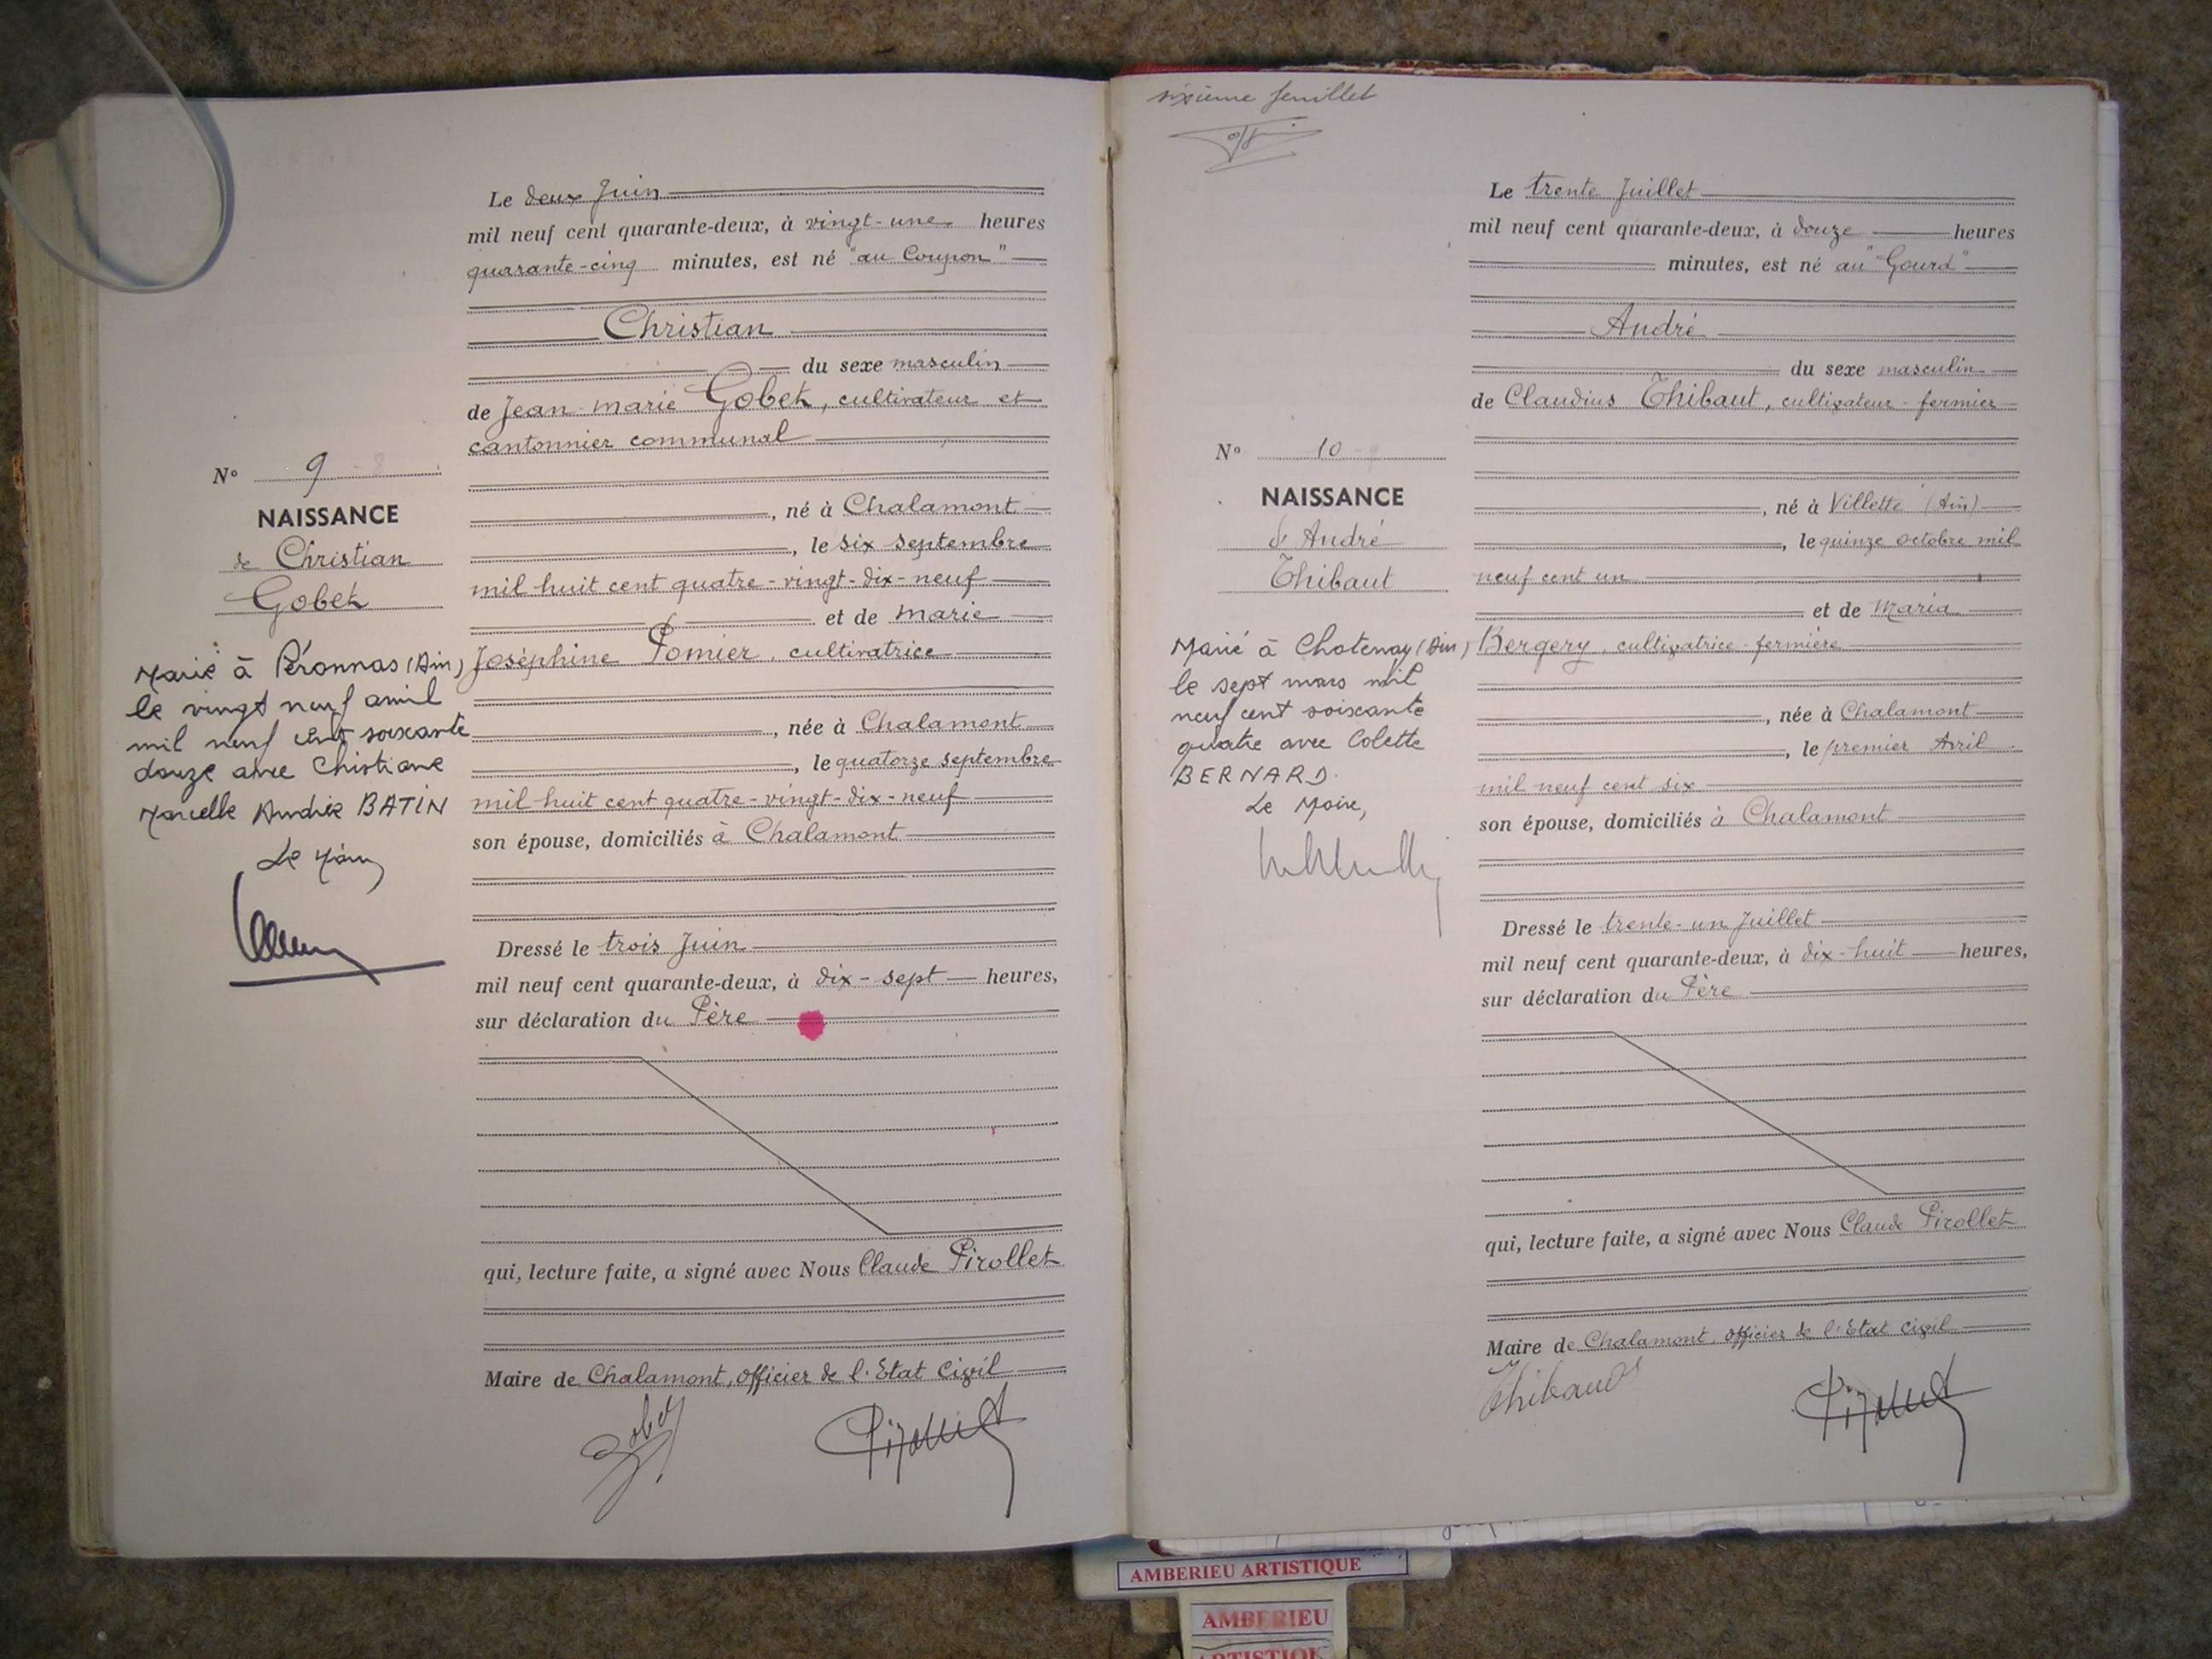 Le deux Juin
mil neuf cent quarante-deux, à vingt-une heures
quarante-cinq minutes, est né "au Coupon"
Christian
du sexe masculin
de Jean-Marie Gobet, cultivateur et
cantonnier communal
N° 9
NAISSANCE
de Christian
Gobet
, né à Chalamont
, le six septembre
mil huit cent quatre-vingt-dix-neuf
et de Marie
Joséphine Pomier, cultivatrice
, née à Chalamont
, le quatorze septembre
mil huit cent quatre-vingt-dix-neuf
son épouse, domiciliés à Chalamont
Marié à Péronnas (Ain)
le vingt neuf avril
mil neuf cent soixante
douze avec Christiane
Marcelle Andrée BATIN
Le Maire
Dressé le trois Juin
mil neuf cent quarante-deux, à dix-sept heures,
sur déclaration du Père
qui, lecture faite, a signé avec Nous Claude Pirollet
Maire de Chalamont, officier de l'Etat Civil
Gobet
Pirollet
sixième feuillet
Le trente Juillet
mil neuf cent quarante-deux, à douze heures
minutes, est né au "Gourd"
André
du sexe masculin
de Claudius Thibaut, cultivateur-fermier
N° 10
NAISSANCE
d'André
Thibaut
, né à Villette (Ain)
, le quinze octobre mil
neuf cent un
et de Maria
Bergery, cultivatrice-fermière
, née à Chalamont
, le premier Avril
mil neuf cent six
son épouse, domiciliés à Chalamont
Marié à Chatenay (Ain)
le sept mars mil
neuf cent soixante
quatre avec Colette
BERNARD.
Le Maire,
Dressé le trente-un Juillet
mil neuf cent quarante-deux, à dix-huit heures,
sur déclaration du Père
qui, lecture faite, a signé avec Nous Claude Pirollet
Maire de Chalamont, officier de l'Etat Civil
Thibaud
Pirollet
AMBERIEU ARTISTIQUE
AMBERIEU
ARTISTIQUE